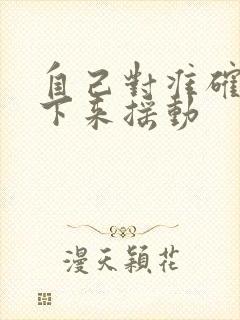 自己對准確
下來揺動
漫天穎花